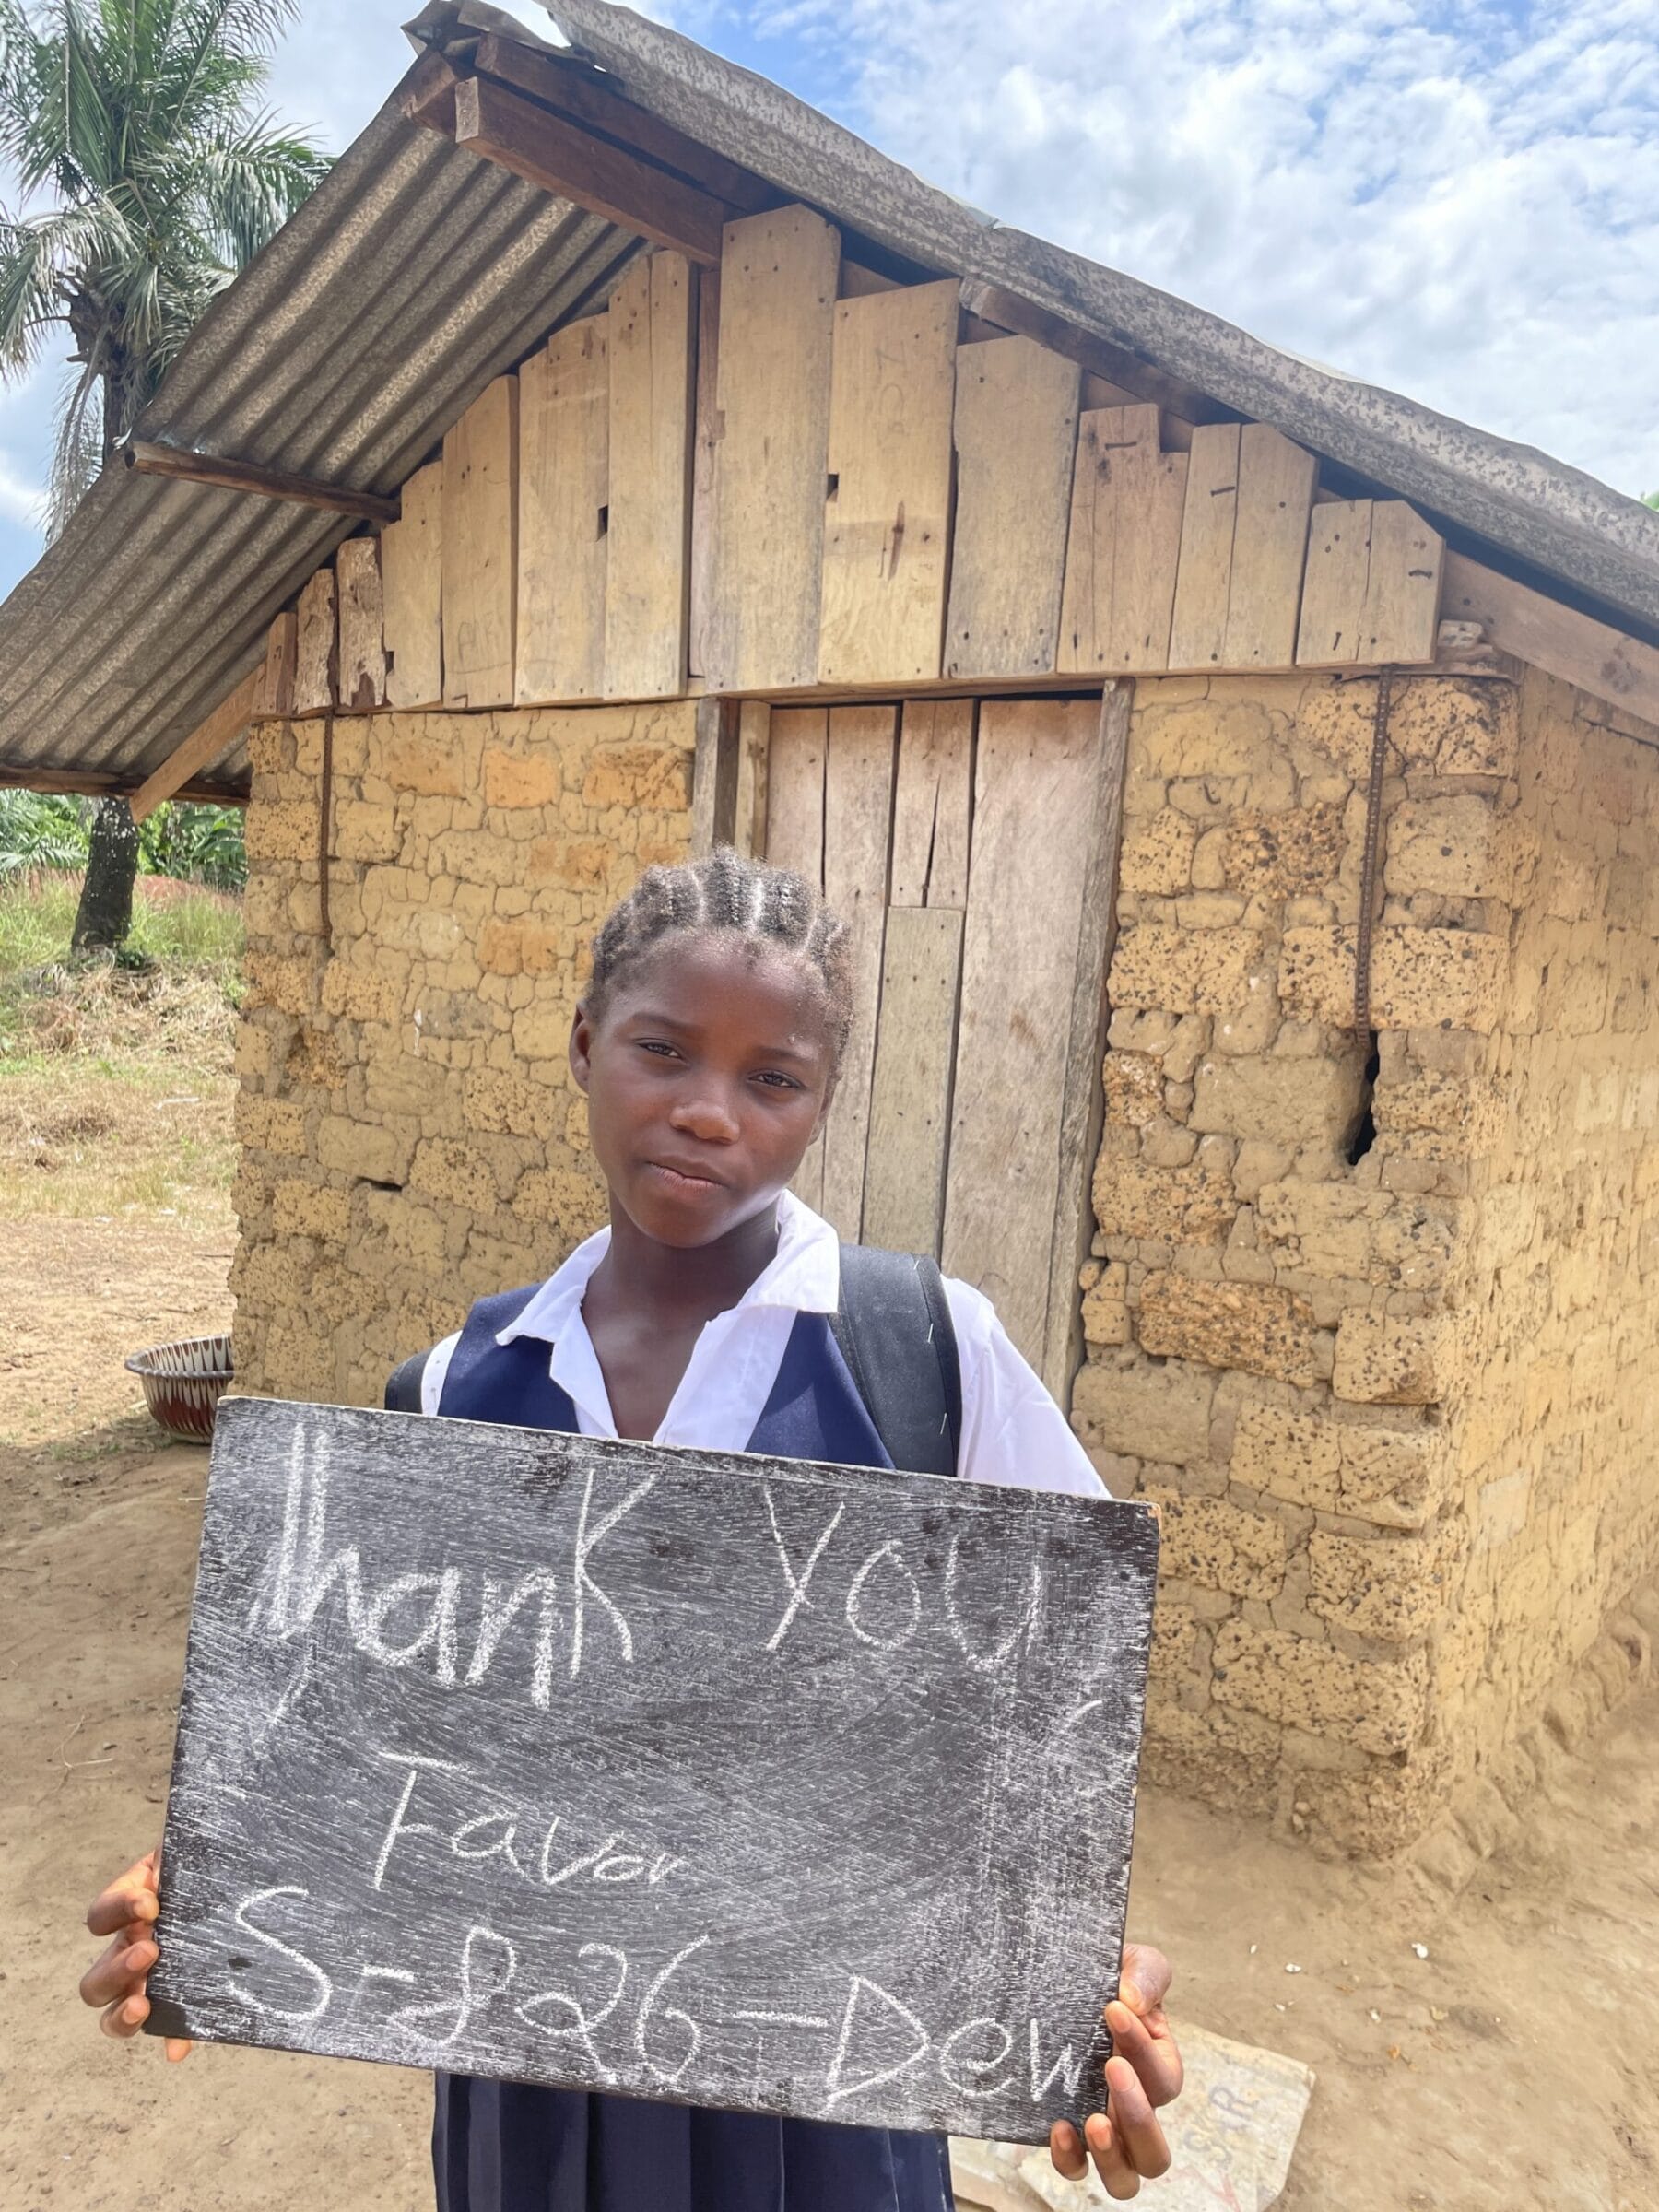 Thank You
Favor
S-826-Dew
SAR